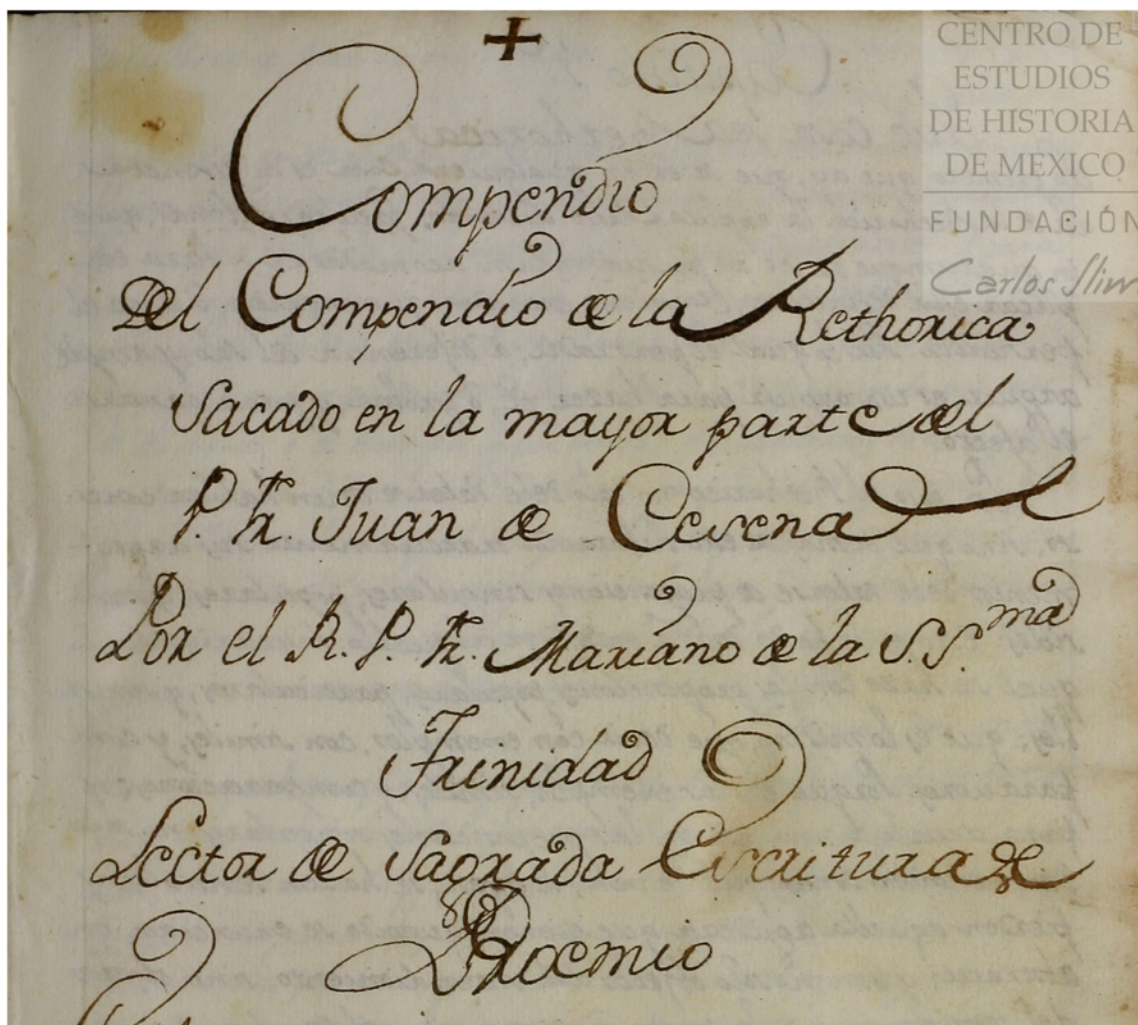 CENTRO DE
ESTUDIOS
DE HISTORIA
DE MEXICO
FUNDACIÓN
Carlos Slim
+
Compendio
Del Compendio de la Rethorica
Sacado en la mayor parte del
P. Fr. Juan de Cesena
Por el R. P. Fr. Mariano de la S.S.ma
Trinidad
Lector de Sagrada Escritura &
Proemio